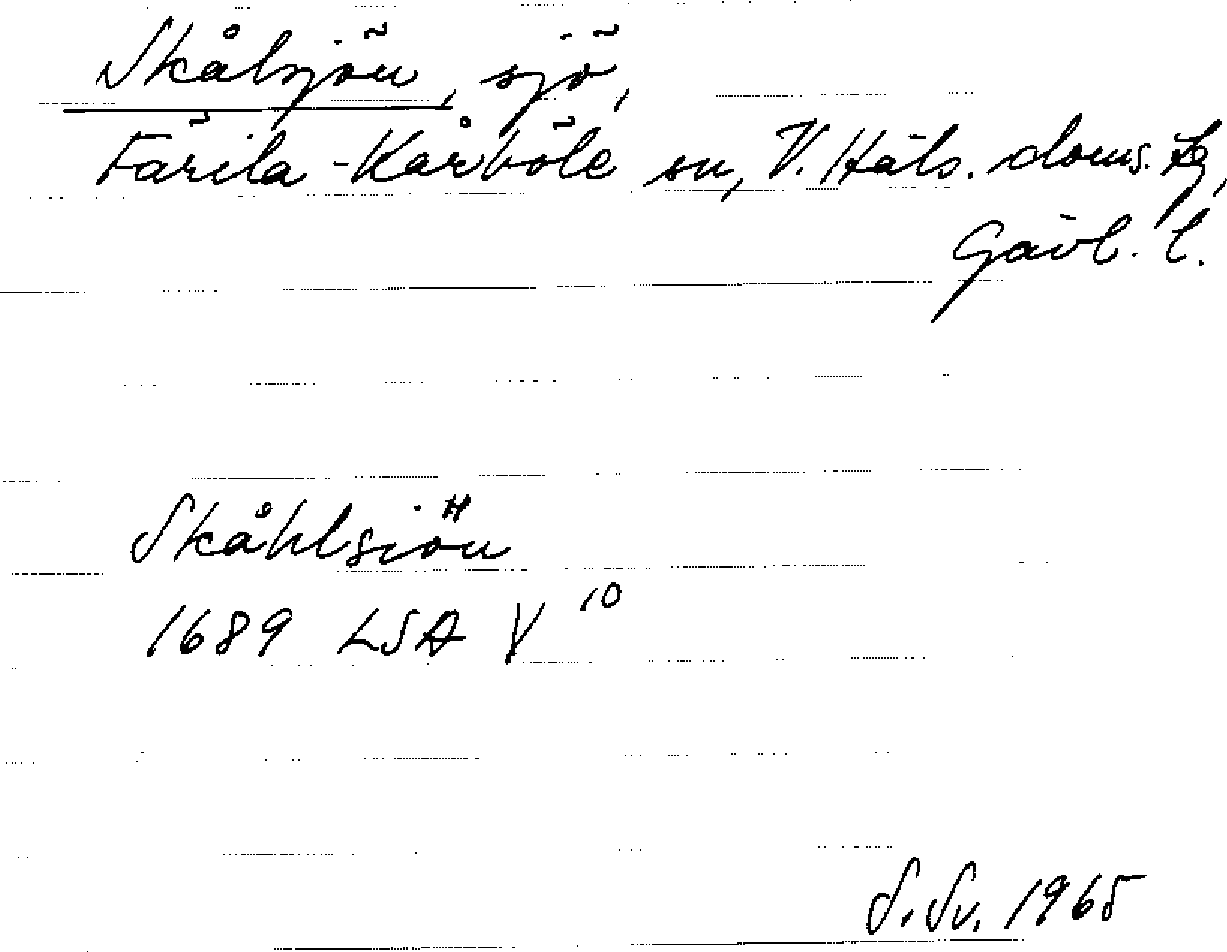 Skålsjön, sjö,
Färila-Kårböle sn, V. Häls. doms. tg,
Gävl. l.
Skåhlsiön
1689 LSA V 10
S. Sv. 1965